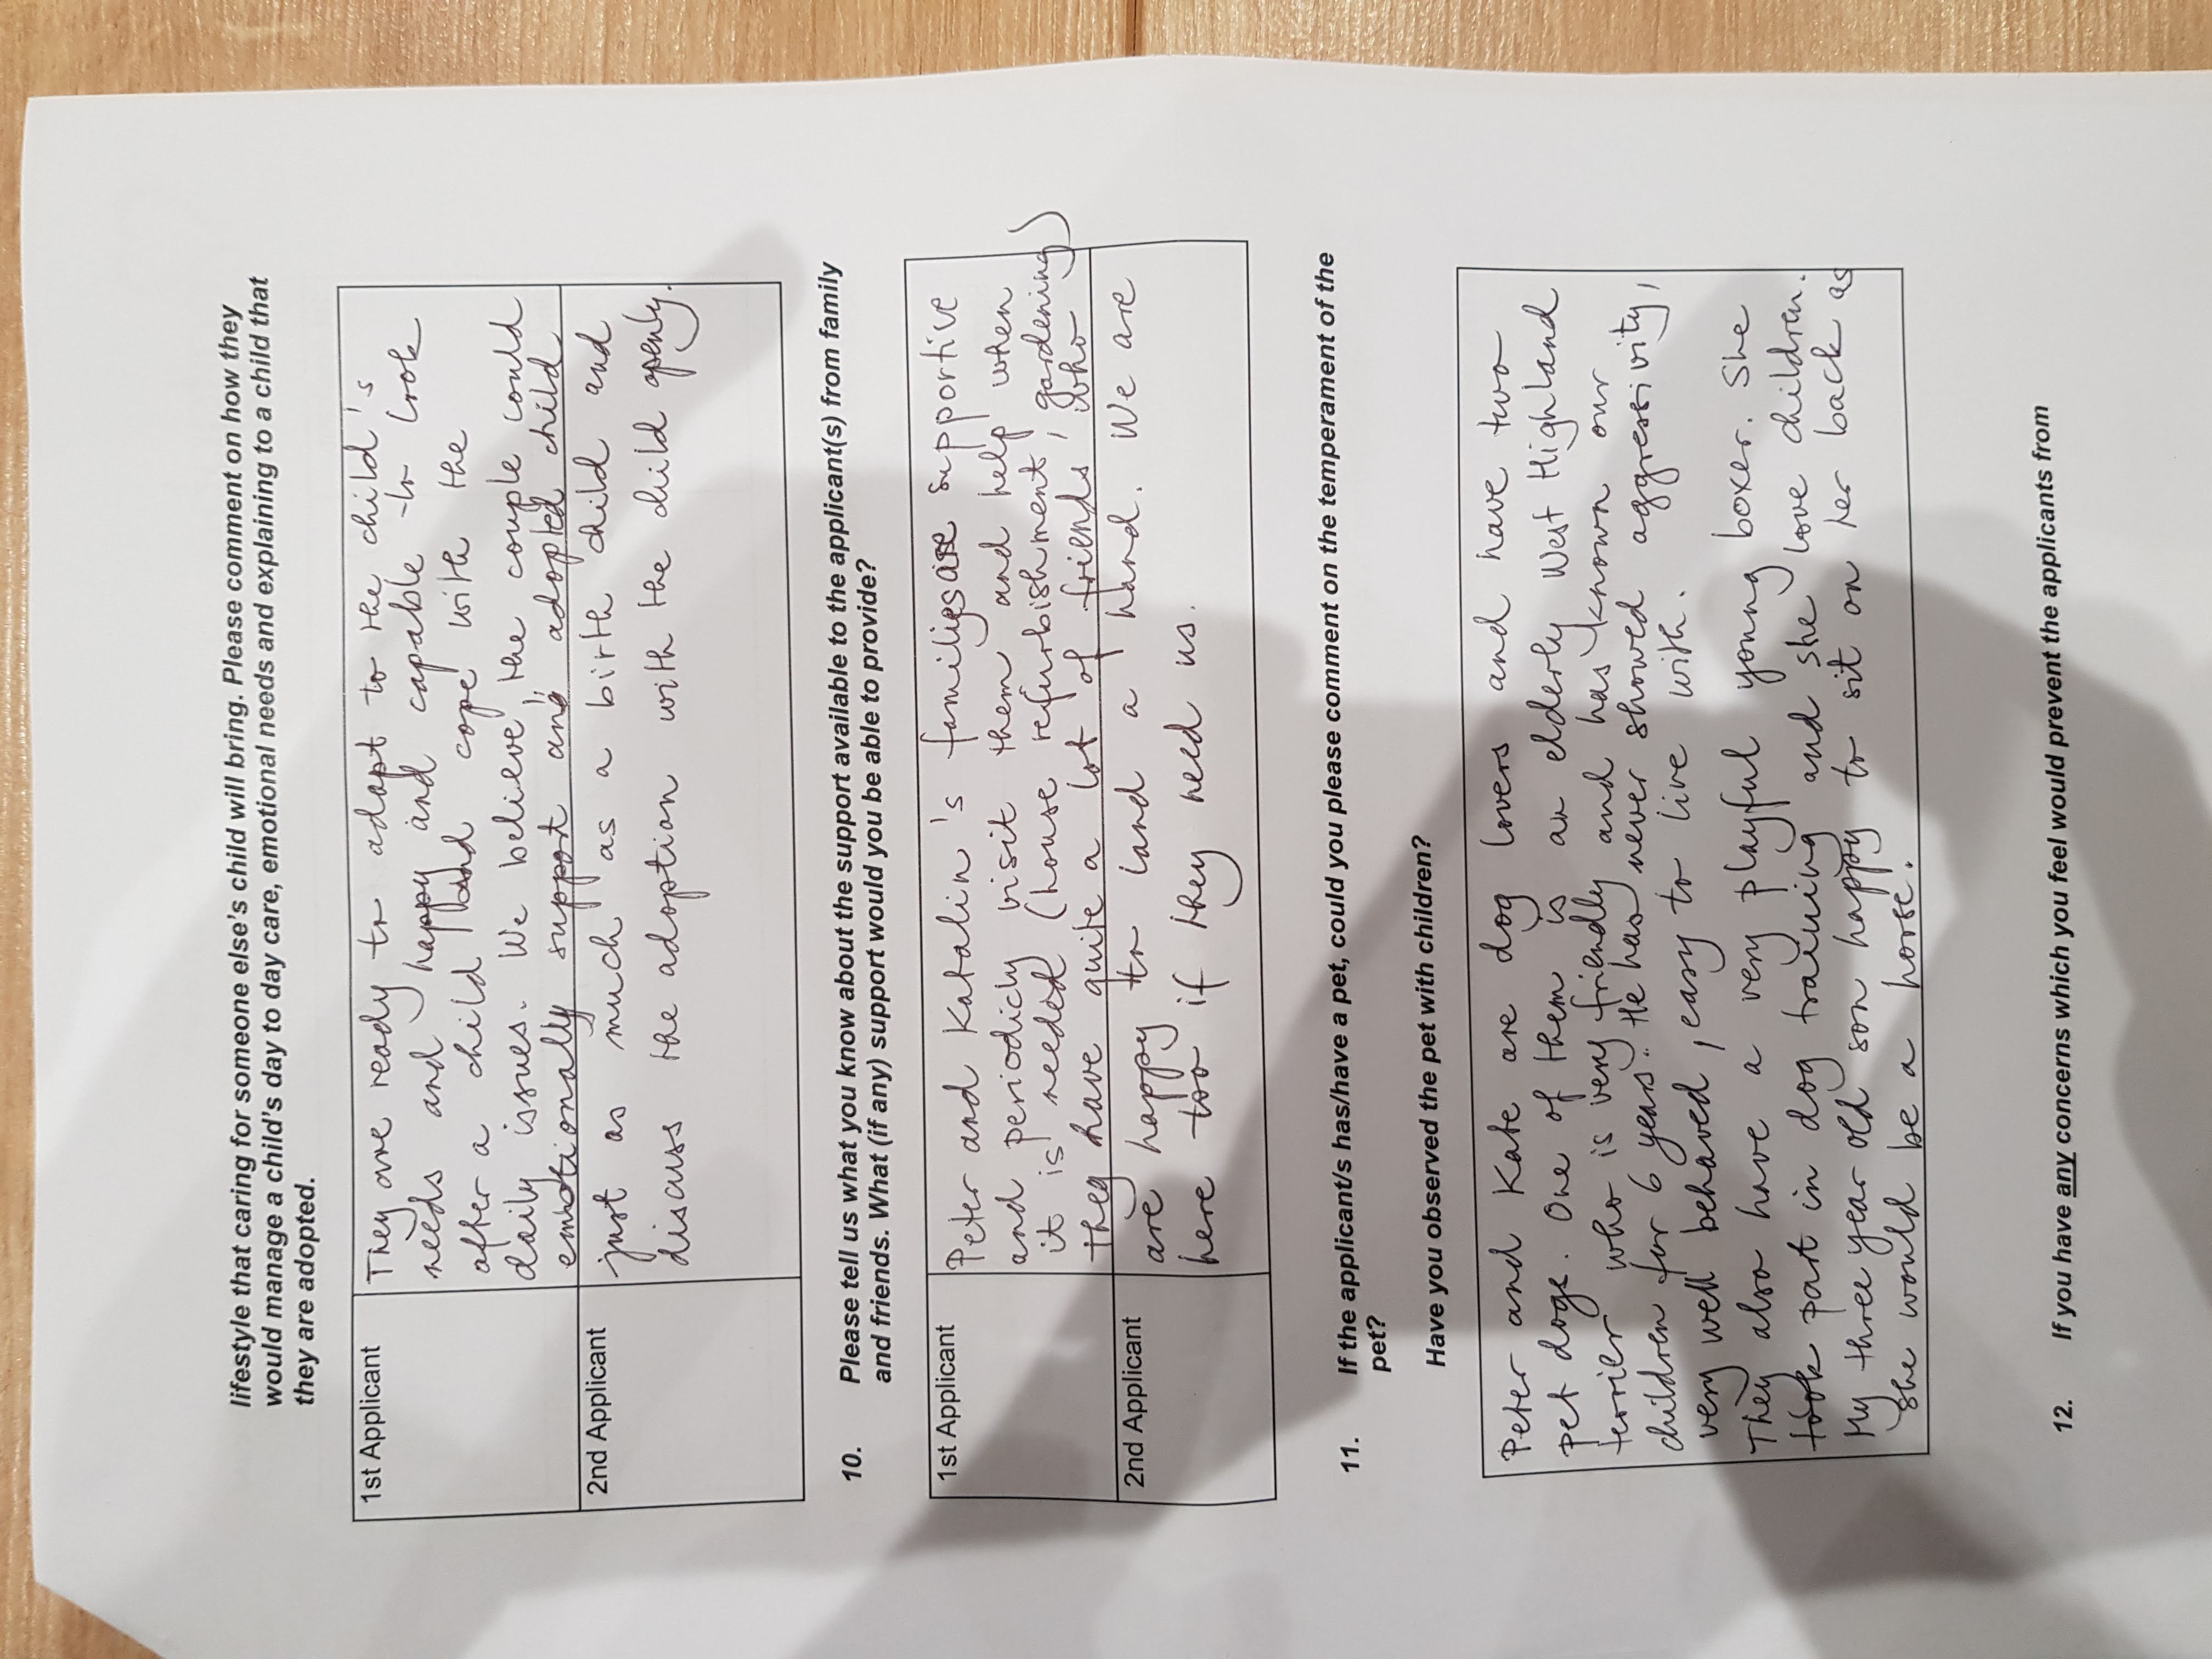 lifestyle that caring for someone else's child will bring. Please comment on how they
would manage a child's day to day care, emotional needs and explaining to a child that
they are adopted.
1st Applicant
They are ready to adapt to the child's
needs and happy and capable to look
after a child and cope with the
daily issues. We believe the couple could
emotionally support and adopted child
2nd Applicant
just as much as a birth child and
discuss the adoption with the child openly.
10. Please tell us what you know about the support available to the applicant(s) from family
and friends. What (if any) support would you be able to provide?
1st Applicant
Peter and Katalin's families are supportive
and periodicly visit them and help when
it is needed (house refurbishment, gardening)
they have quite a lot of friends, who
2nd Applicant
are happy to land a hand. We are
here too if they need us.
11. If the applicant/s has/have a pet, could you please comment on the temperament of the
pet?
Have you observed the pet with children?
Peter and Kate are dog lovers and have two
pet dogs. One of them is an elderly West Highland
terrier who is very friendly and has known our
children for 6 years. He has never showed aggressivity,
very well behaved, easy to live with.
They also have a very playful young boxer. She
took part in dog training and she love children.
My three year old son happy to sit on her back as
she would be a horse.
12. If you have any concerns which you feel would prevent the applicants from